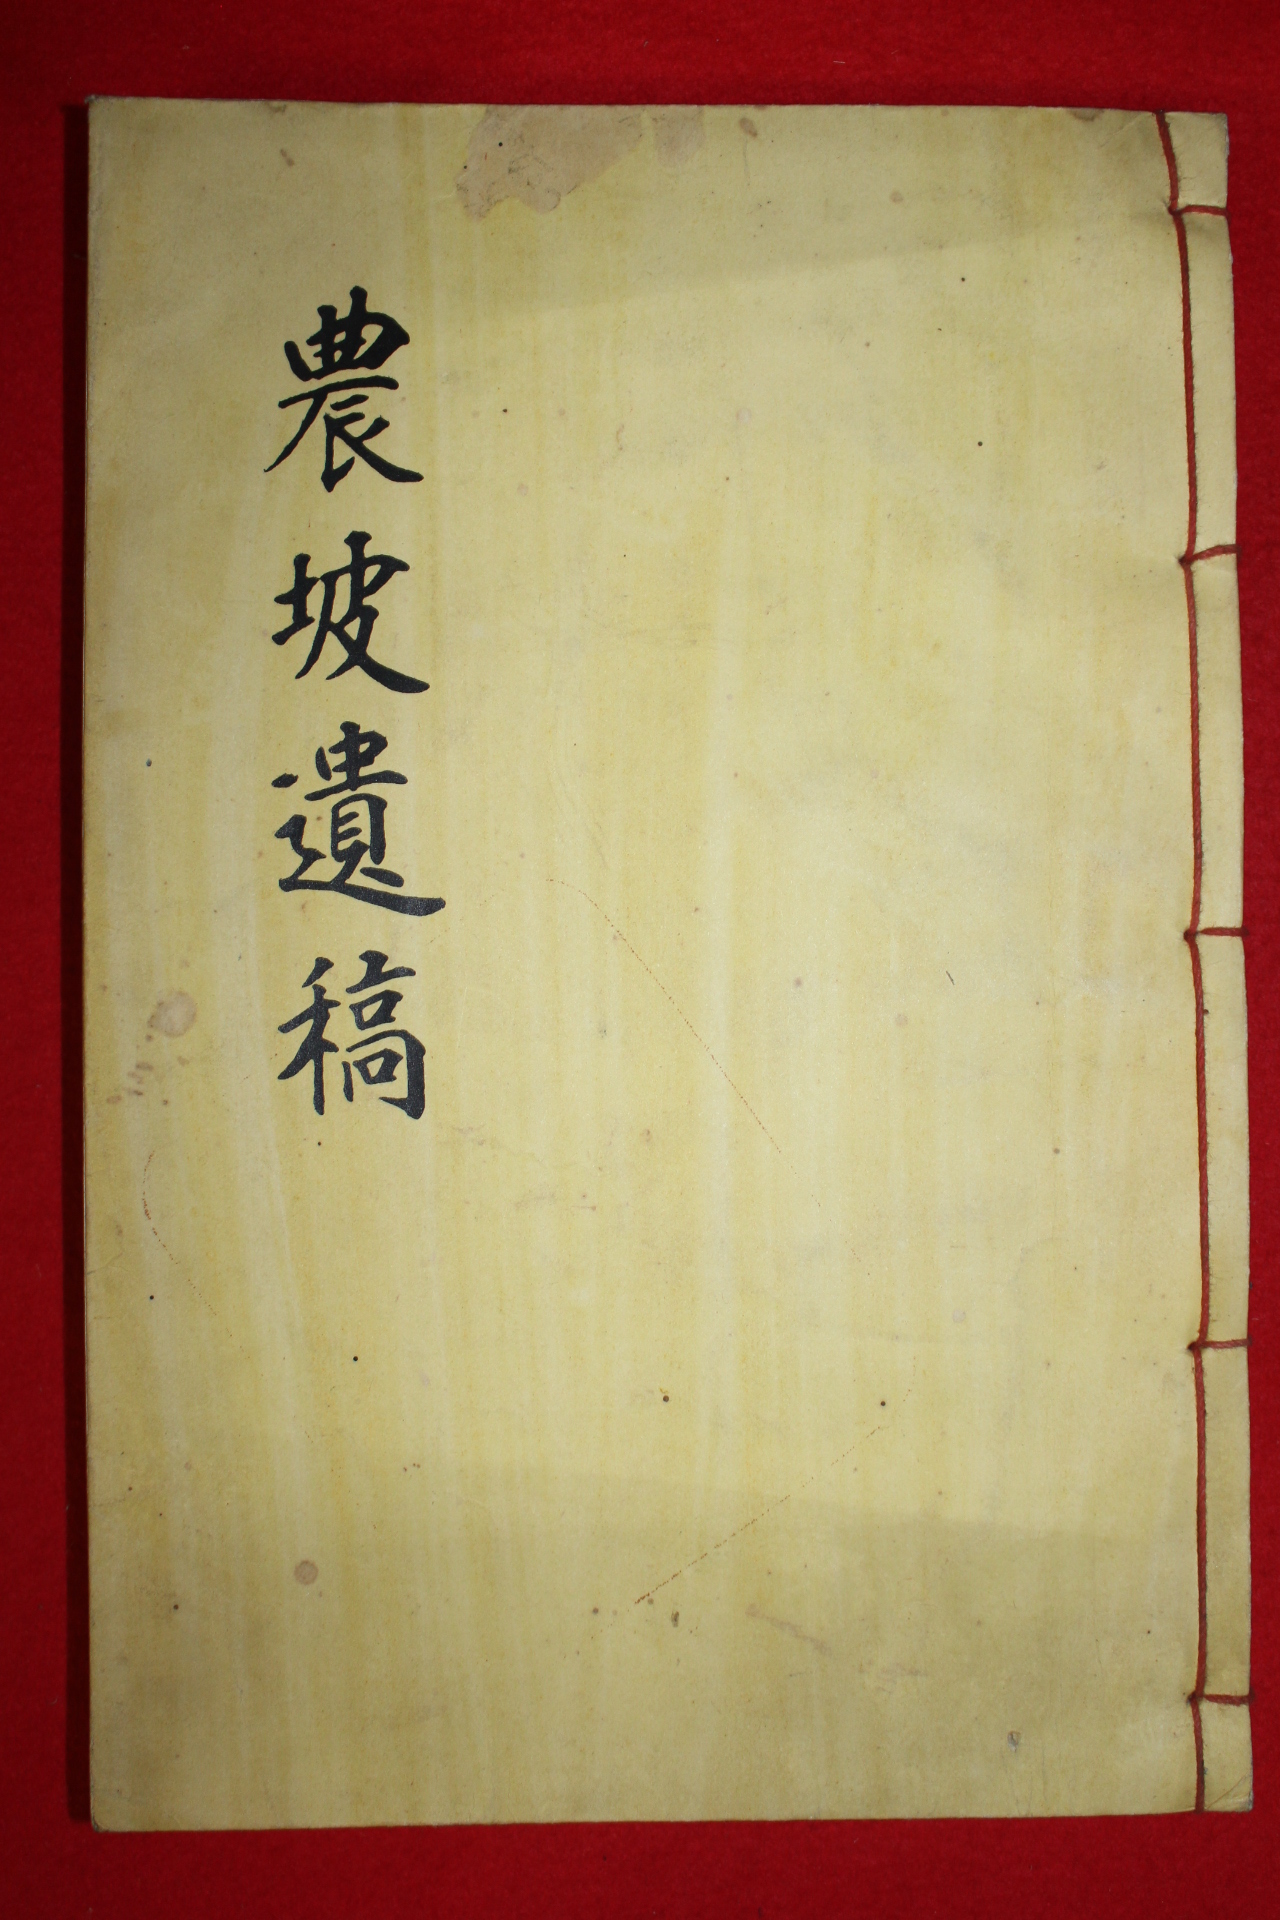 農坡遺稿